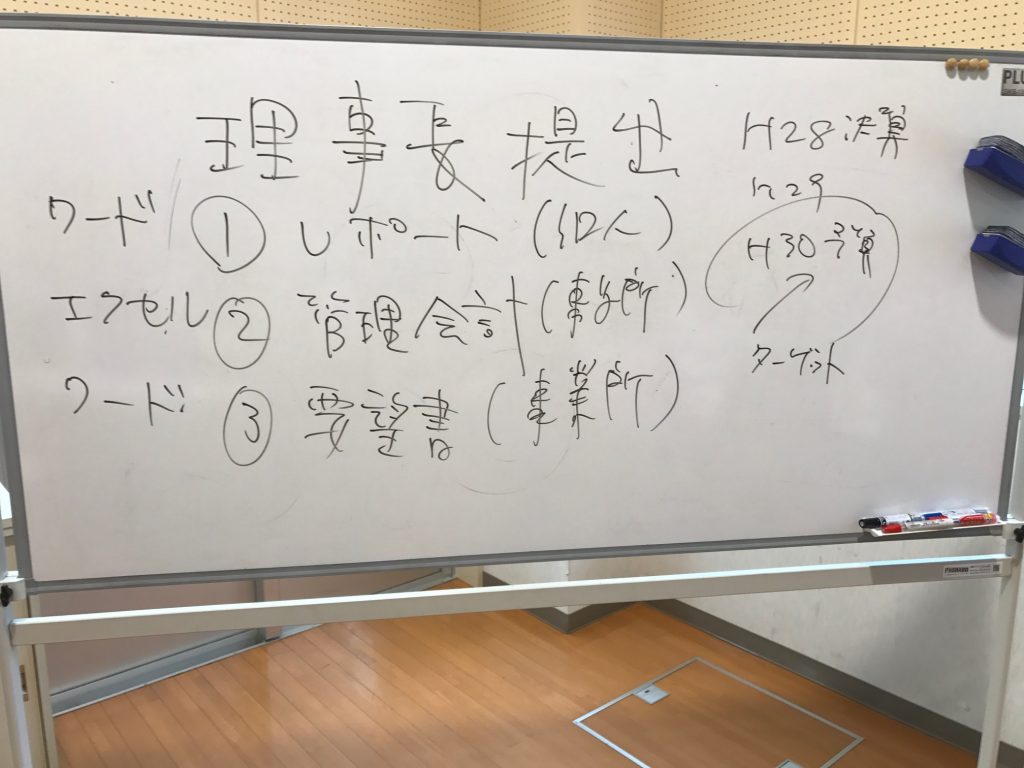 理事長提出
ワード ① レポート (個人)
エクセル ② 管理会計 (事務所)
ワード ③ 要望書 (事業所)
H28決算
H29
H30予算
ターゲット
PLU